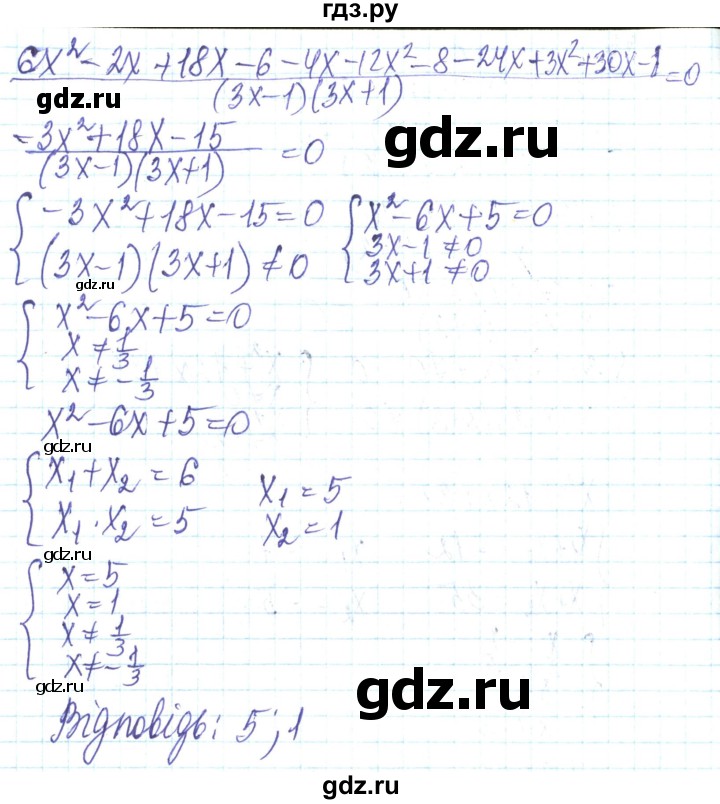 гдз.ру
6x² - 2x + 18x - 6 - 4x - 12x² - 8 - 24x + 3x² + 30x - 1
(3x-1)(3x+1) =0
gdz.ru
-3x² + 18x - 15
(3x-1)(3x+1) =0
gdz.ru
{ -3x² + 18x - 15 = 0 { x² - 6x + 5 = 0
(3x-1)(3x+1) ≠ 0 3x-1 ≠ 0
3x+1 ≠ 0
gdz.ru
{ x² - 6x + 5 = 0
x ≠ 1/3
x ≠ -1/3
x² - 6x + 5 = 0
gdz.ru
{ x₁ + x₂ = 6 x₁ = 5
x₁ · x₂ = 5 x₂ = 1
gdz.ru
{ x = 5
x = 1
x ≠ 1/3
x ≠ -1/3
gdz.ru
gdz.ru
Відповідь: 5; 1
gdz.ru